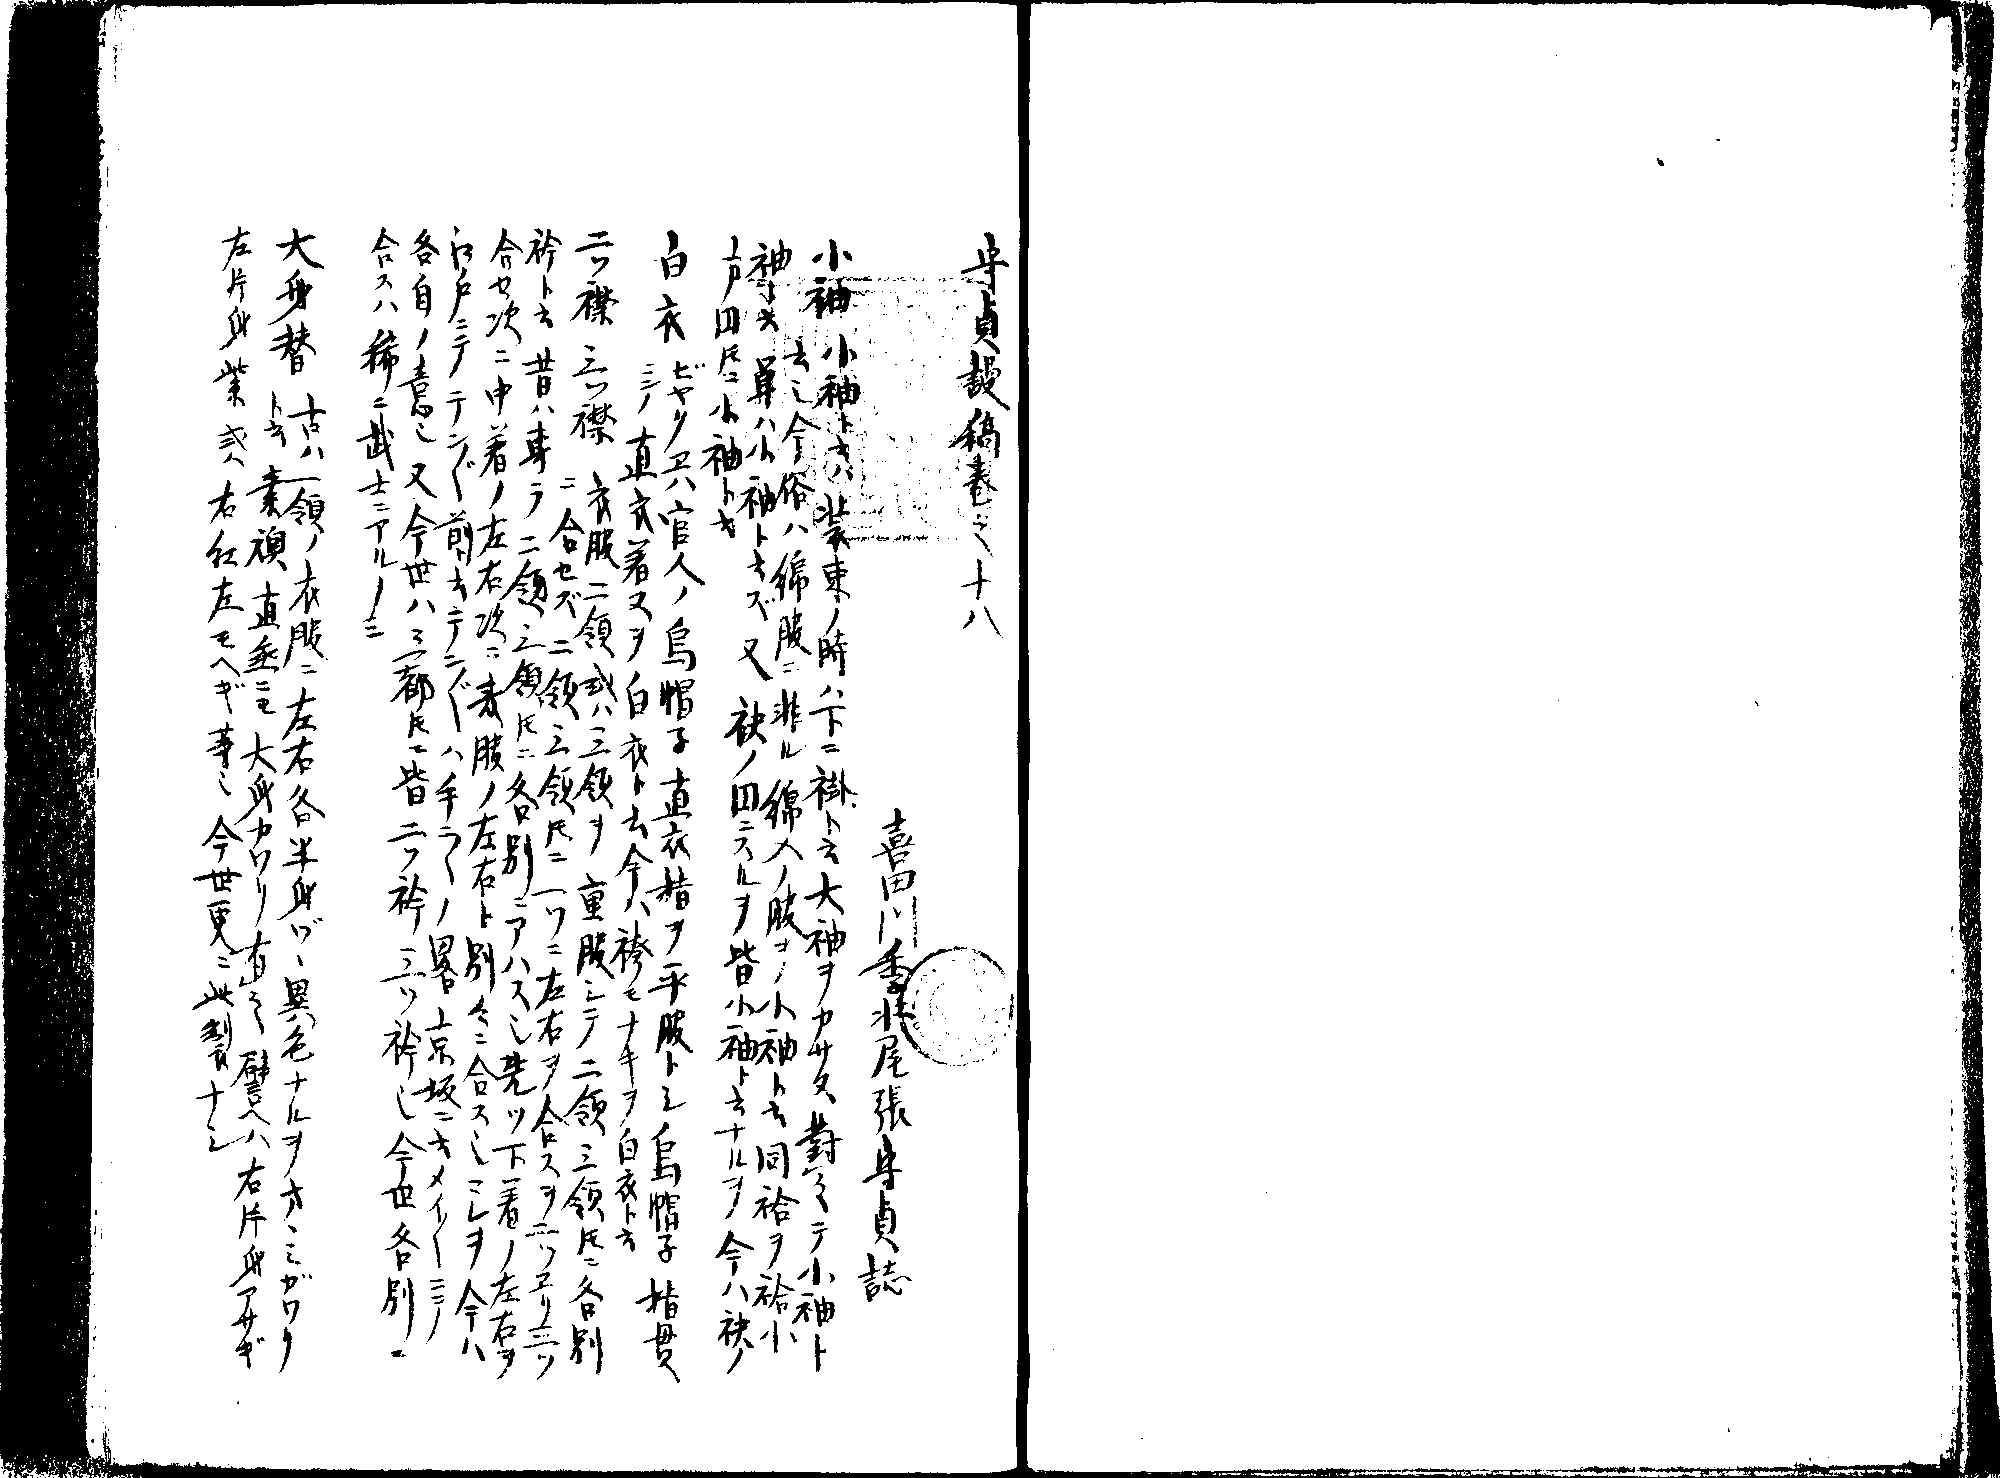 守貞謾稿巻之十八
喜田川季荘尾張守貞誌
小袖 小袖ト云ハ装束ノ時ハ下ニ褂ト云大袖ヲカサヌ対之テ小袖ト
云也今俗ハ綿服ニ非ル綿入ノ服ヲノ小袖ト云同袷ヲ袷小
袖ト云単ハ小袖ト云ズ又袂ノ四ニスルヲ皆小袖ト云ナルヲ今ハ袂ノ
戸四トモニ小袖ト云
白衣 ビヤクヱハ官人ノ烏帽子直衣指ヲ平服トシ烏帽子指貫
ミノ直衣着ヌヲ白衣ト云今ハ袴モナキヲ白衣ト云
二ツ襟三ツ襟 衣服二領或ハ三領ヲ重服シテ二領三領トモニ各別
ニ合セズ二領三領トモニ一ツニ左右ヲ合スヲ二ツヱリ三ツ
衿ト云昔ハ専ラ二領三領トモニ各別ニアハス也先ツ下着ノ左右ヲ
合セ次ニ中着ノ左右次ニ表服ノ左右ト別々ニ合ス也コレヲ今ハ
江戸ニテテンデン前ト云テンデンハ手ラ々ノ畧京坂ニ云メイメイニノ
各自ノ意也又今世ハ三都トモニ皆二ツ衿三ツ衿也今世各別ニ
合スハ稀ニ武士ニアルノミ
大身替 古ハ一領ノ衣服ニ左右各半身ヅヽ異色ナルヲ大ミガワリ
ト云素襖直垂ニモ大身カワリ有之譬ヘハ右片身アサギ
左片身紫或ハ右紅左モヘギ等也今世更ニ此製ナシ